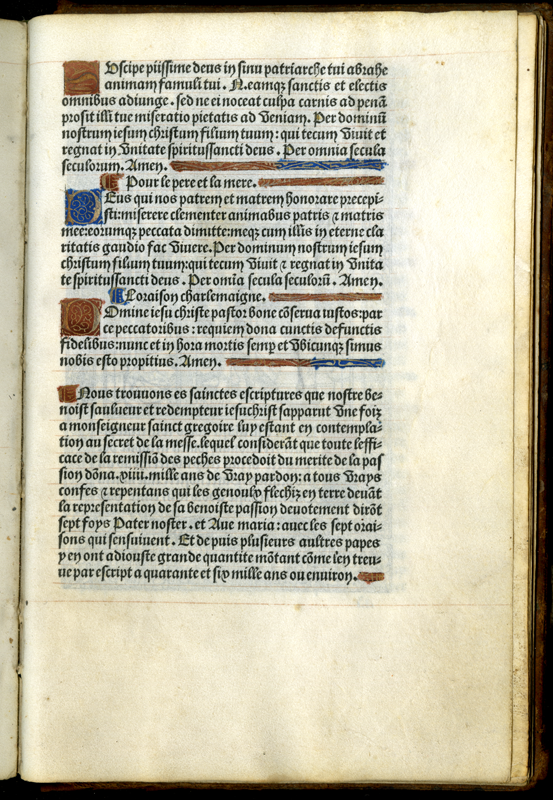 Suscipe piissime deus in sinu patriarche tui abrahe
animam famuli tui . N. eamqꝫ sanctis et electis
omnibus adiunge . sed ne ei noceat culpa carnis ad penā
prosit illi tue miseratio pietatis ad veniam. Per dominū
nostrum iesum christum filium tuum : qui tecum vivit et
regnat in vnitate spiritussancti deus . Per omnia secula
seculorum. Amen.
Pour le pere et la mere.
Deus qui nos patrem et matrem honorare precepi-
sti:miserere clementer animabus patris ⁊ matris
mee:eorumqꝫ peccata dimitte:meqꝫ cum illis in eterne cla
ritatis gaudio fac vivere. Per dominum nostrum iesum
christum filium tuum:qui tecum vivit ⁊ regnat in vnita
te spiritussancti deus . Per omīa secula seculorū . Amen.
Loraison charlemaigne.
Domine iesu christe pastor bone cōserua iustos:par
ce peccatoribus : requiem dona cunctis defunctis
fidelibus:nunc et in hora mortis semp̄ et vbicunqꝫ simus
nobis esto propitius. Amen.
Nous trouuons es sainctes escriptures que nostre be-
noist saulueur et redempteur iesuchrist sapparut vne foiz
a monseigneur sainct gregoire luy estant en contempla-
tion au secret de la messe. lequel considerāt que toute leffi-
cace de la remissiō des peches procedoit du merite de la pas
sion dōna .xiiii. mille ans de vray pardon: a tous vrays
confes ⁊ repentans qui les genoulx flechiz en terre deuāt
la representation de sa benoiste passion deuotement dirōt
sept foys Pater noster . et Aue maria : auec les sept orai-
sons qui sensuiuent . Et de puis plusieurs aultres papes
y en ont adiouste grande quantite mōtant cōme len treu-
ue par escript a quarante et six mille ans ou enuiron.